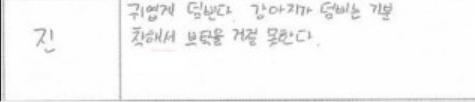 귀엽게 덤빈다. 강아지가 덤비는 기분
진
착해서 부탁을 거절 못한다.